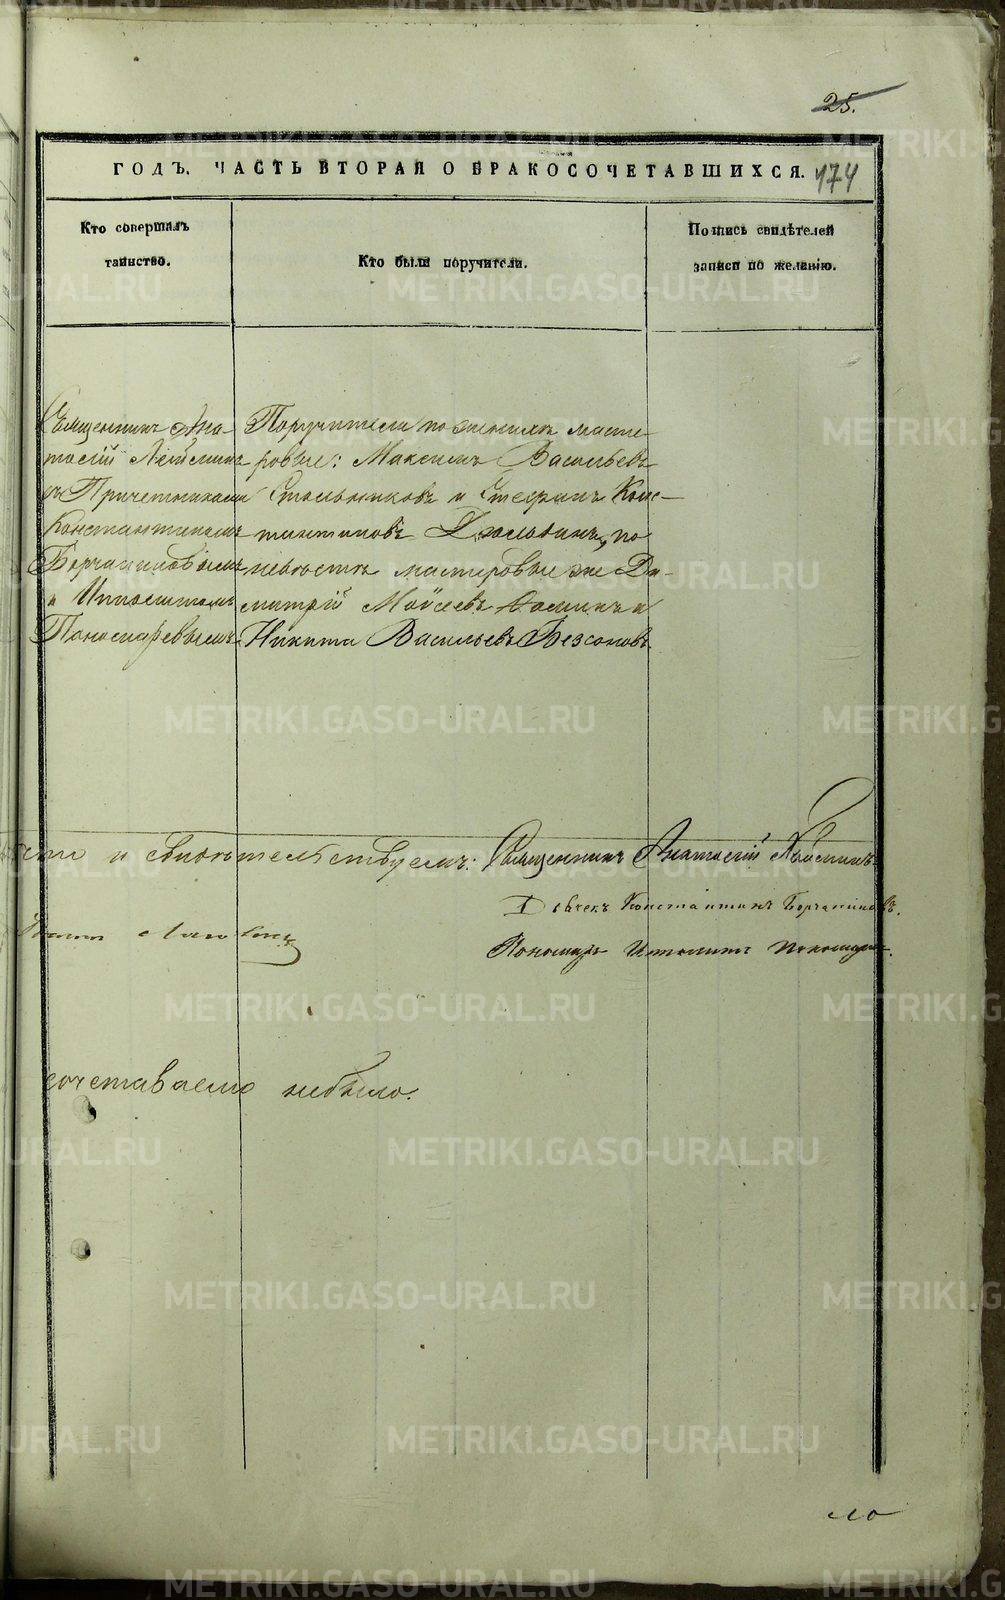 25.
ГОДЪ. ЧАСТЬ ВТОРАЯ О БРАКОСОЧЕТАВШИХСЯ. 174
Кто совершалъ таинство.
Кто были поручители.
Подпись свидѣтелей записи по желанію.
Священникъ Ана-
толій
съ Причетниками
Константиномъ
и Ипполитомъ
Пономаревымъ.
Поручители по женихѣ масте-
ровые: Максимъ Васильевъ
Стольниковъ и Стефанъ Конс-
тантиновъ по
невѣстѣ мастеровые же Ди-
митрій Мойсеевъ и
Никита Васильевъ Безсоновъ.
и свидѣтельствуемъ: Священникъ Анатолій
Константинъ
Пономарь Ипполитъ Пономаревъ.
сочетаваемо небыло.
METRIKI.GASO-URAL.RU